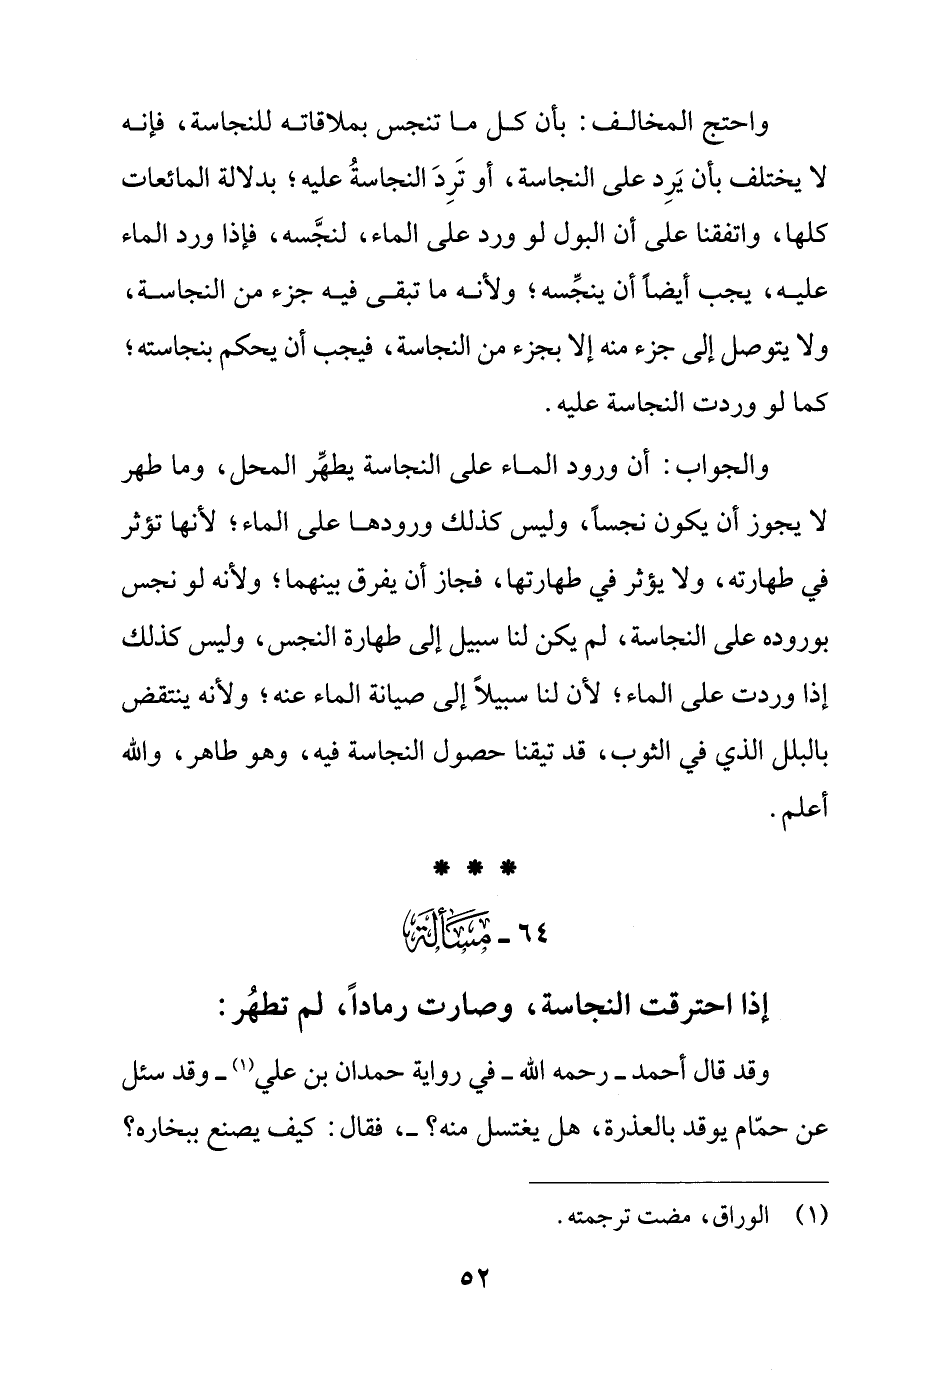 واحتج المخالف: بأن كل ما تنجس بملاقاته للنجاسة، فإنه
لا يختلف بأن يَرِد على النجاسة، أو تَرِدَ النجاسةُ عليه؛ بدلالة المائعات
كلها، واتفقنا على أن البول لو ورد على الماء، لنجَّسه، فإذا ورد الماء
عليه، يجب أيضاً أن ينجِّسه؛ ولأنه ما تبقى فيه جزء من النجاسة،
ولا يتوصل إلى جزء منه إلا بجزء من النجاسة، فيجب أن يحكم بنجاسته؛
كما لو وردت النجاسة عليه.
والجواب: أن ورود الماء على النجاسة يطهِّر المحل، وما طهر
لا يجوز أن يكون نجساً، وليس كذلك ورودها على الماء؛ لأنها تؤثر
في طهارته، ولا يؤثر في طهارتها، فجاز أن يفرق بينهما؛ ولأنه لو نجس
بوروده على النجاسة، لم يكن لنا سبيل إلى طهارة النجس، وليس كذلك
إذا وردت على الماء؛ لأن لنا سبيلاً إلى صيانة الماء عنه؛ ولأنه ينتقض
بالبلل الذي في الثوب، قد تيقنا حصول النجاسة فيه، وهو طاهر، والله
أعلم.
* * *
٦٤ - مسألة
إذا احترقت النجاسة، وصارت رماداً، لم تطهُر:
وقد قال أحمد - رحمه الله - في رواية حمدان بن علي(١) - وقد سئل
عن حمّام يوقد بالعذرة، هل يغتسل منه؟ -، فقال: كيف يصنع ببخاره؟
(١) الوراق، مضت ترجمته.
٥٢